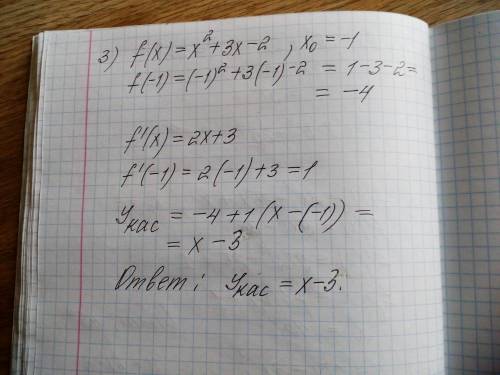 3) f(x) = x² + 3x - 2 , x₀ = -1
f(-1) = (-1)² + 3(-1) - 2 = 1 - 3 - 2 =
= -4
f'(x) = 2x + 3
f'(-1) = 2(-1) + 3 = 1
Yкас = -4 + 1(x - (-1)) =
= x - 3
Ответ: Yкас = x - 3.